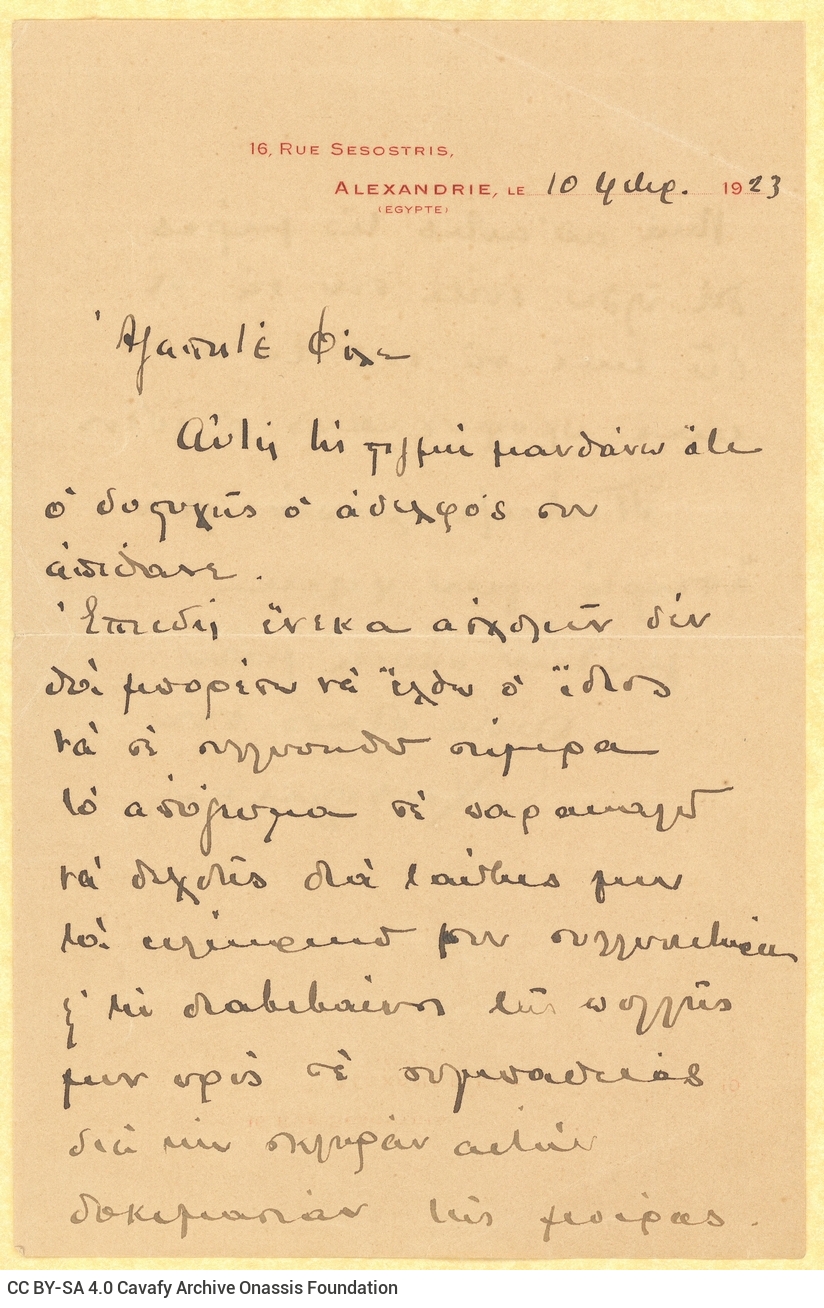 16, RUE SESOSTRIS,
ALEXANDRIE, LE 10 Φεβρ. 1923
(EGYPTE)
Ἀγαπητέ Φίλε
Αὐτή τή στιγμή μανθάνω ὅτι
ὁ δυστυχής ὁ ἀδελφός σου
ἀπέθανε.
Ἐπειδή ἕνεκα ἀσχολιῶν δέν
θά μπορέσω νά ἔλθω ὁ ἴδιος
νά σέ συλλυπηθῶ σήμερα
τό ἀπόγευμα σέ παρακαλῶ
νά δεχθῆς διά ταύτης μου
τά εἰλικρινῆ μου συλλυπητήρια
ϗ τή διαβεβαίωσι τῆς πολλῆς
μου πρός σέ συμπαθείας
διά τήν σκληράν αὐτήν
δοκιμασίαν τῆς μοίρας.
CC BY-SA 4.0 Cavafy Archive Onassis Foundation